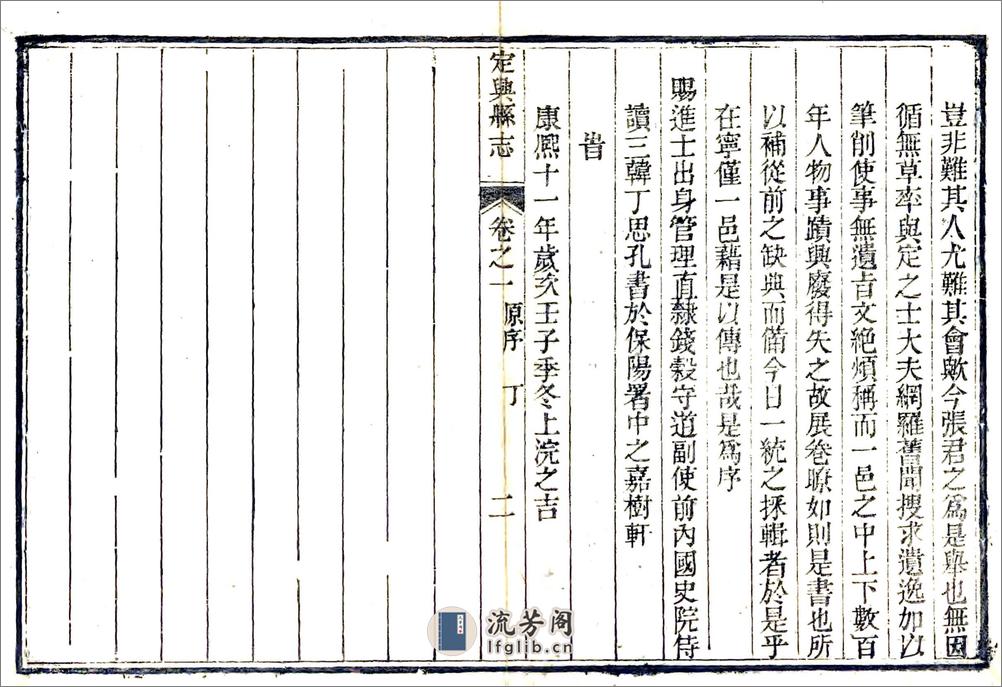 豈非難其人尤難其會歟今張君之爲是舉也無因
循無草率與定之士大夫網羅舊聞搜求遺逸加以
筆削使事無遺旨文絶煩稱而一邑之中上下數百
年人物事蹟興廢得失之故展卷瞭如則是書也所
以補從前之缺典而備今日一統之採輯者於是乎
在寧僅一邑藉是以傳也哉是爲序
賜進士出身管理直隷錢穀守道副使前內國史院侍
讀三韓丁思孔書於保陽署中之嘉樹軒
旹
康熈十一年歲次壬子季冬上浣之吉
定興縣志 卷之一 原序 丁 二
流芳阁
lfglib.cn